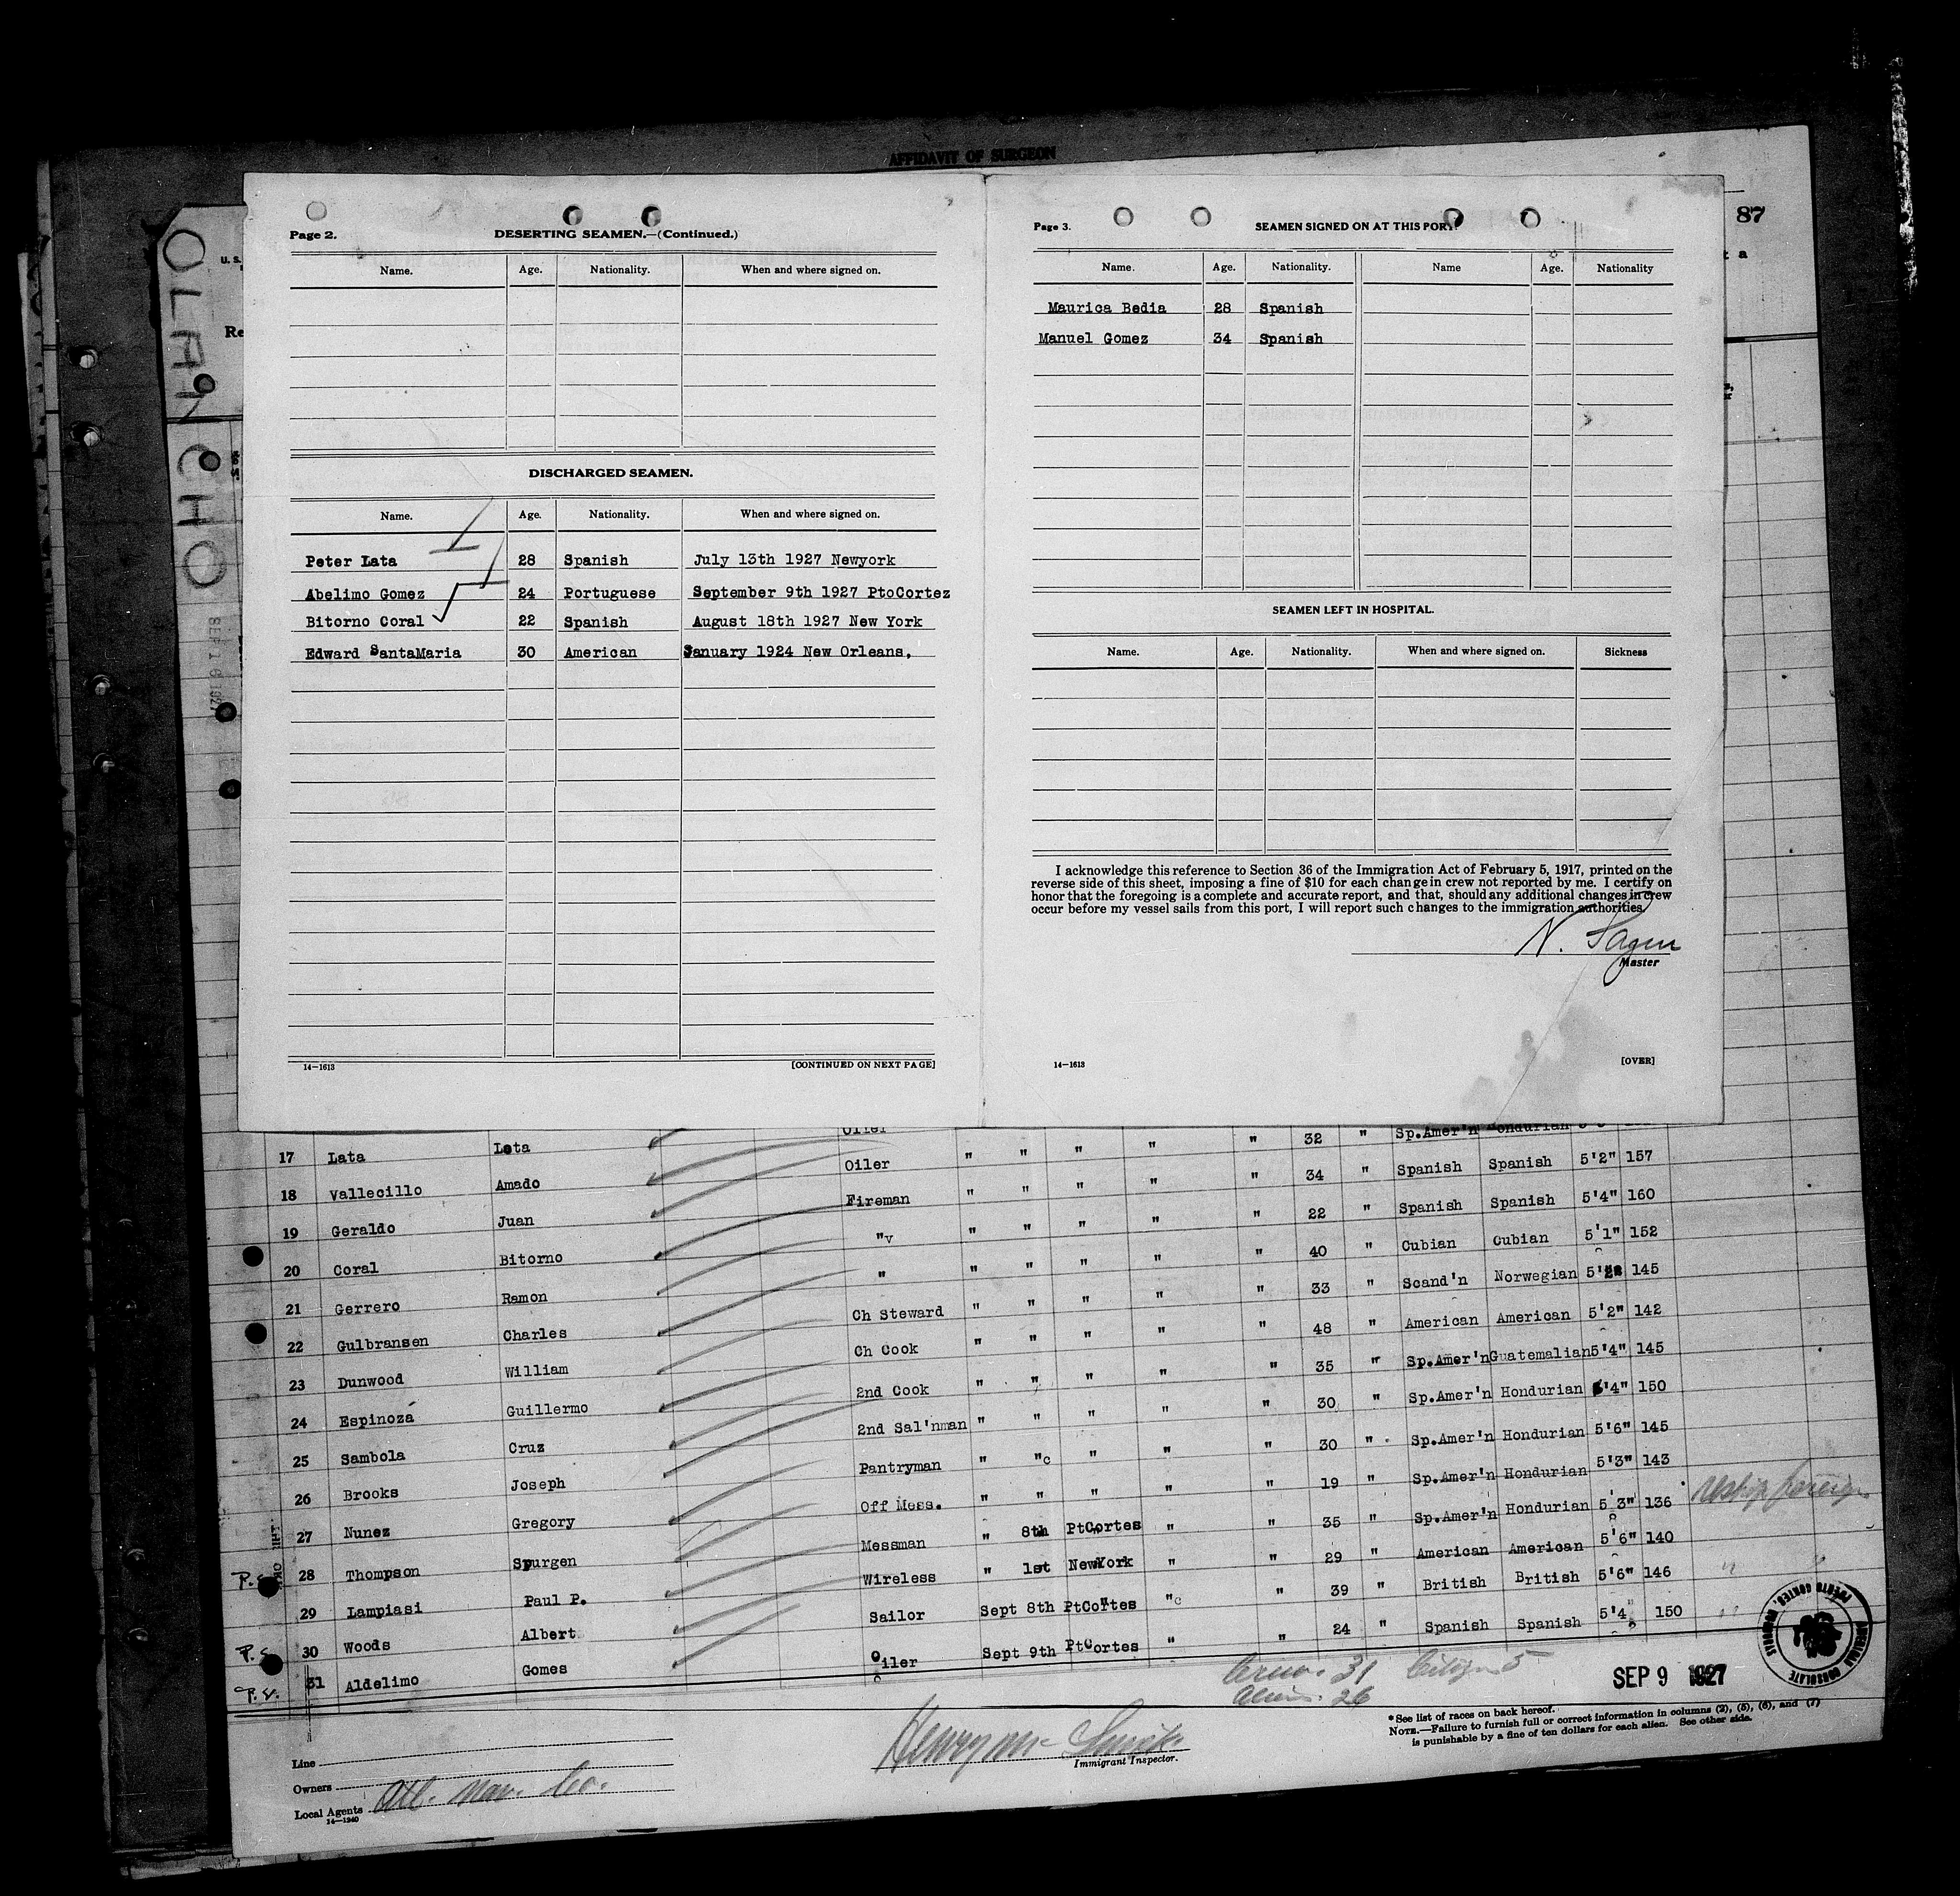 AFFIDAVIT OF SURGEON
87
t a
U. S.
Re
OLANCHO
SEP 16 1927
Page 2.
DESERTING SEAMEN.—(Continued.)
Name. Age. Nationality. When and where signed on.
DISCHARGED SEAMEN.
Name. Age. Nationality. When and where signed on.
Peter Lata 28 Spanish July 13th 1927 Newyork
Abelimo Gomez 24 Portuguese September 9th 1927 PtoCortez
Bitorno Coral 22 Spanish August 18th 1927 New York
Edward SantaMaria 30 American Sanuary 1924 New Orleans.
14—1613
[CONTINUED ON NEXT PAGE]
Page 3.
SEAMEN SIGNED ON AT THIS PORT.
Name. Age. Nationality. Name Age. Nationality
Maurica Bedia 28 Spanish
Manuel Gomez 34 Spanish
SEAMEN LEFT IN HOSPITAL.
Name. Age. Nationality. When and where signed on. Sickness
I acknowledge this reference to Section 36 of the Immigration Act of February 5, 1917, printed on the
reverse side of this sheet, imposing a fine of $10 for each change in crew not reported by me. I certify on
honor that the foregoing is a complete and accurate report, and that, should any additional changes in crew
occur before my vessel sails from this port, I will report such changes to the immigration authorities.
N. Fagen
Master
14—1613
[OVER]
17 Lata Lota Oiler " " " " " 32 " Sp.Amer'n Hondurian
18 Vallecillo Amado Oiler " " " " " 34 " Spanish Spanish 5'2" 157
19 Geraldo Juan Fireman " " " " " 22 " Spanish Spanish 5'4" 160
20 Coral Bitorno "v " " " " " 40 " Cubian Cubian 5'1" 152
21 Gerrero Ramon " " " " " " 33 " Scand'n Norwegian 5'2" 145
22 Gulbransen Charles Ch Steward " " " " " 48 " American American 5'2" 142
23 Dunwood William Ch Cook " " " " " 35 " Sp.Amer'n Guatemalian 5'4" 145
24 Espinoza Guillermo 2nd Cook " " " " " 30 " Sp.Amer'n Hondurian 5'4" 150
25 Sambola Cruz 2nd Sal'nman " " " " " 30 " Sp.Amer'n Hondurian 5'6" 145
26 Brooks Joseph Pantryman " "c " " " 19 " Sp.Amer'n Hondurian 5'3" 143
27 Nunez Gregory Off Mess. " " " " " 35 " Sp.Amer'n Hondurian 5'3" 136
P.S. 28 Thompson Spurgen Messman " 8th PtCortes " " 29 " American American 5'6" 140
29 Lampiasi Paul P. Wireless " 1st NewYork " " 39 " British British 5'6" 146
P.S. 30 Woods Albert Sailor Sept 8th PtCortes "c " 24 " Spanish Spanish 5'4 150
P.S. 31 Aldelimo Gomes Oiler Sept 9th PtCortes "
Crew. 31 Citizen 5
Aliens. 26
SEP 9 1927
AMERICAN CONSULATE
PUERTO CORTES, HONDURAS
*See list of races on back hereof.
NOTE.—Failure to furnish full or correct information in columns (2), (5), (6), and (7)
is punishable by a fine of ten dollars for each alien. See other side.
Immigrant Inspector.
Line
Owners
Local Agents Atl. Nav. Co.
14—1240